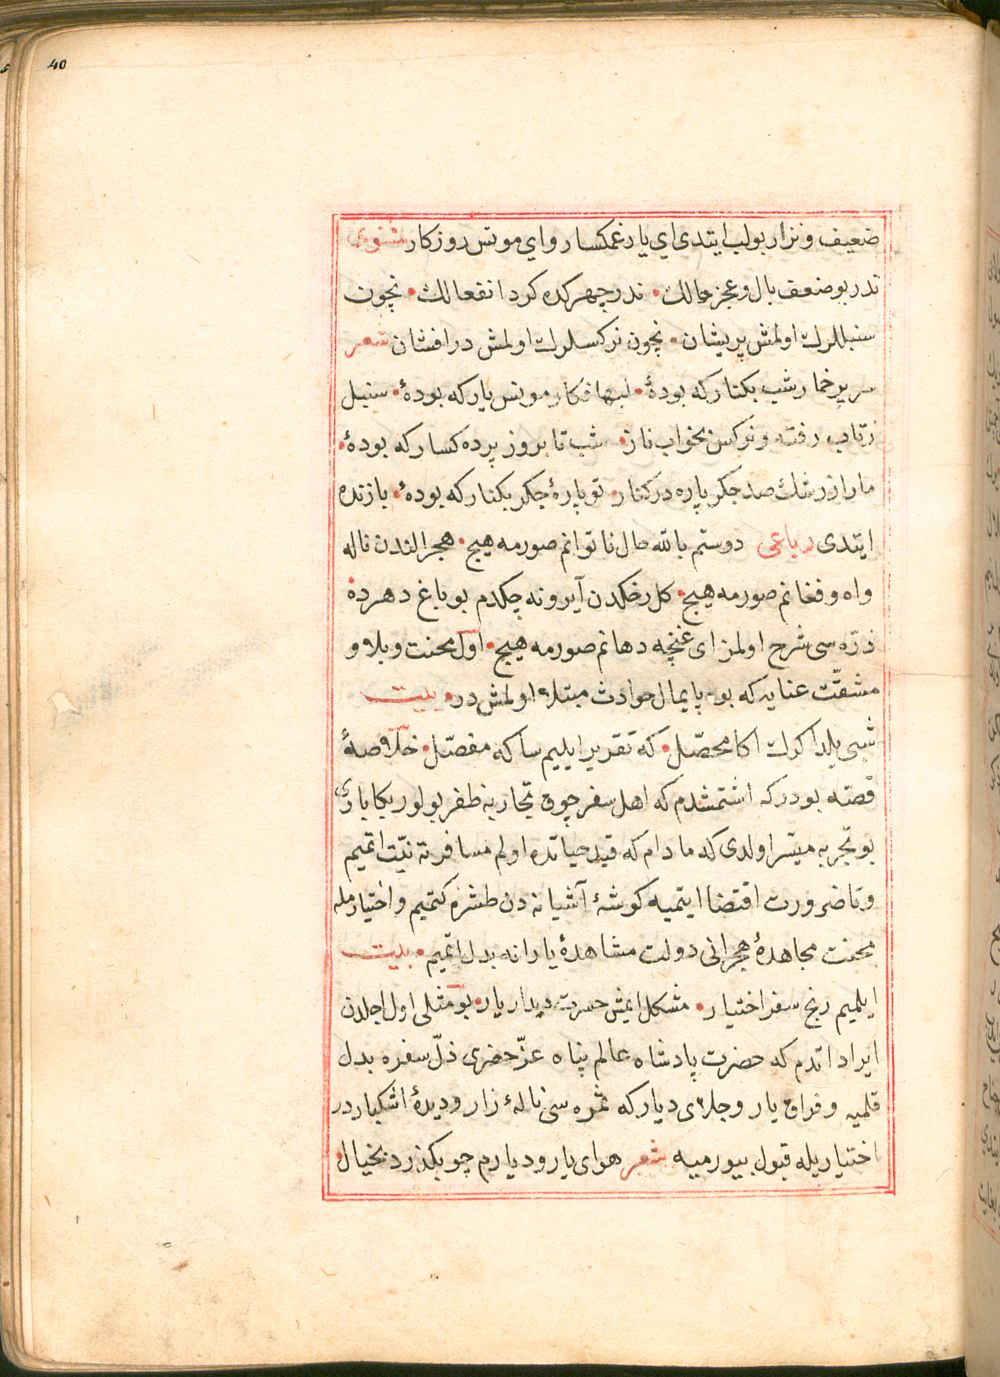 40
ضعیف و نزار بولب ایتدی ای یار غمکسار وای مونس روزکار مثنوی
ندر بو ضعف بال و عجز حالك • ندر چهرکده کرد انفعالك • نچون
سنبللرك اولمش پریشان • نچون نرکسلرك اولمش در افشان شعر
سر پر خمار شب بکنار که بودهٔ • لبها فکار مونس یار که بودهٔ • سنبل
زتاب رفته و نرکس بخواب ناز • شب تا بروز پرده کسار که بودهٔ •
مارا ز رشك صد جکر پاره در کنار • تو پارهٔ جکر بکنار که بودهٔ • بازنده
ایتدی رباعی دوستم بالله حال ناتوانم صورمه هیج • هجر الندن ناله
واه و فغانم صورمه هیج • کل رخکدن آیرو نه چکدم بو باغ دهرده
ذرّه سی شرح اولمز ای غنچه دهانم صورمه هیج • اول محنت و بلا و
مشقّت عنایه که بو پایمال حوادث مبتلا اولمش در • بیت
شبی یلدا کرك اکا محصّل • که تقریر ایلیم ساکه مفصّل • خلاصهٔ
قصّه بودر که اشتمشدم که اهل سفر چوق تجاربه ظفر بولور بکا باری
بو تجربه میسّر اولدی که مادام که قید حیاتده اولم مسافرته نیّت اتمیم
و تا ضرورت اقتضا ایتمیه کوشهٔ آشیانه دن طشره کتمیم و اختیارمله
محنت مجاهدهٔ هجرانی دولت مشاهدهٔ یارانه بدل اتمیم • بیت
ایلمیم رنج سفر اختیار • مشکل ایمش حسرت دیدار یار • بو مثلی اول اجلدن
ایراد اتدم که حضرت پادشاه عالم پناه عزّ حضری ذلّ سفره بدل
قلمیه و فراق یار و جلای دیار که ثمره سی نالهٔ زار و دیدهٔ اشکبار در
اختیاریله قبول بیورمیه شعر هوای یار و دیارم چو بکذرد بخیال •